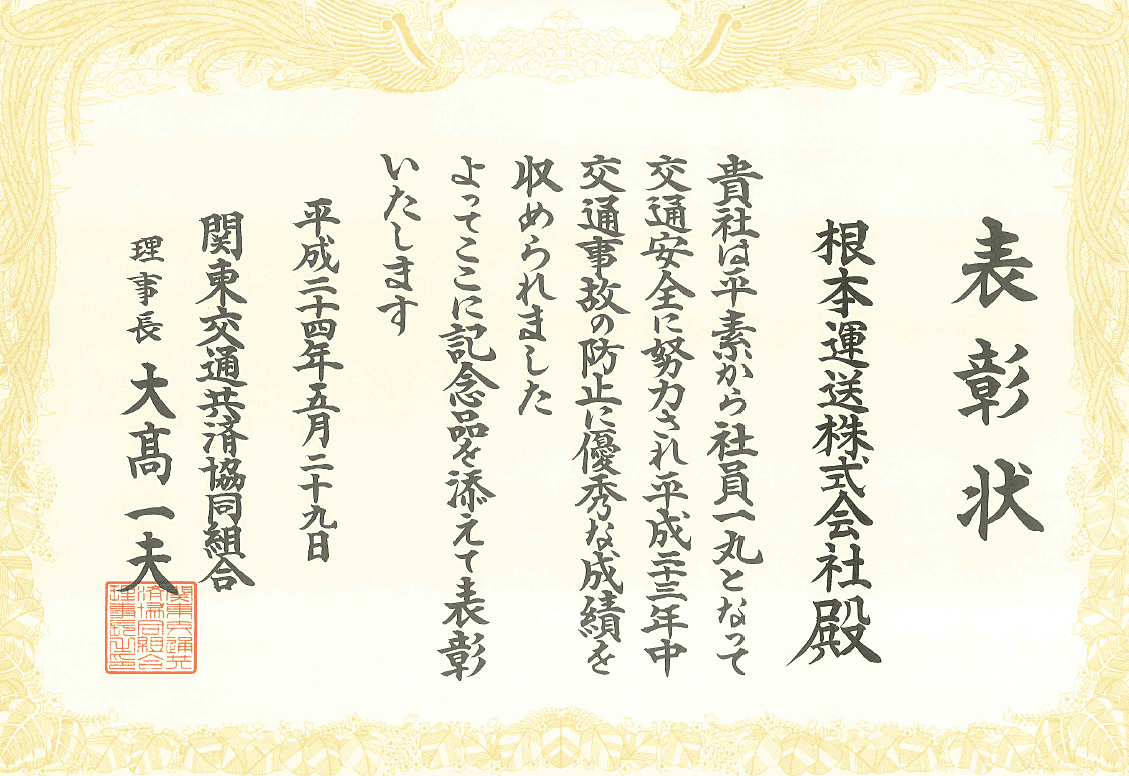 表彰状
根本運送株式会社殿
貴社は平素から社員一丸となって
交通安全に努力され平成二十三年中
交通事故の防止に優秀な成績を
収められました
よってここに記念品を添えて表彰
いたします
平成二十四年五月二十九日
関東交通共済協同組合
理事長 大髙一夫
関東交通共
済協同組合
理事長之印